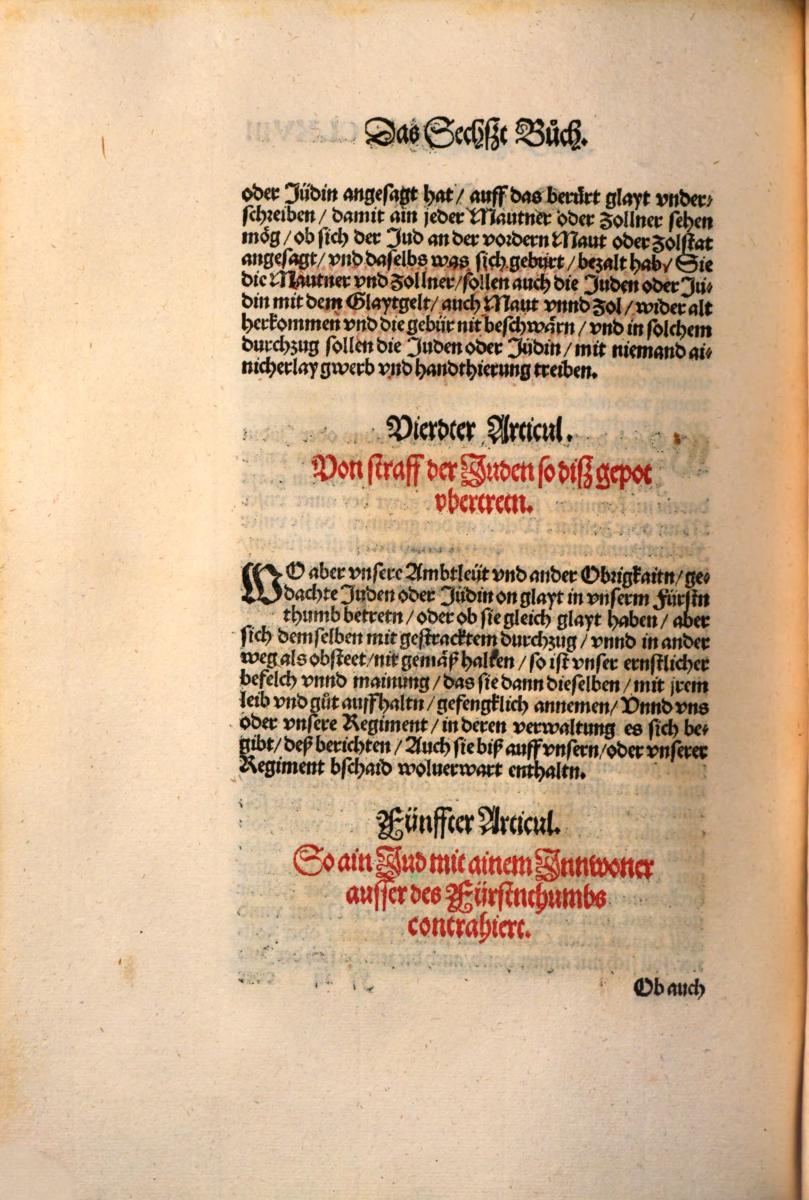 Das Sechßt Bůch.
oder Jüdin angesagt hat / auff das berürt glayt vnder⸗
schreiben / damit ain jeder Mautner oder Zollner sehen
mög / ob sich der Jud an der vordern Maut oder Zolstat
angesagt / vnd daselbs was sich gebürt / bezalt hab / Sie
die Mautner vnd Zollner / sollen auch die Juden oder Jü⸗
din mit dem Glaytgelt / auch Maut vnnd Zol / wider alt
herkommen vnd die gebür nit beschwärn / vnd in solchem
durchzug sollen die Juden oder Jüdin / mit niemand ai⸗
nicherlay gwerb vnd handthierung treiben.
Vierdter Articul.
Von straff der Juden so diß gepot
vbertretn.
WO aber vnsere Ambtleüt vnd ander Obrigkaitn / ge⸗
dachte Juden oder Jüdin on glayt in vnserm Fürstn
thumb betretn / oder ob sie gleich glayt haben / aber
sich demselben mit gestracktem durchzug / vnnd in ander
weg als obsteet / nit gemäß halten / so ist vnser ernstlicher
befelch vnnd mainung / das sie dann dieselben / mit jrem
leib vnd gůt auffhaltn / gefengklich annemen / Vnnd vns
oder vnsere Regiment / in deren verwaltung es sich be⸗
gibt / deß berichten / Auch sie biß auff vnsern / oder vnserer
Regiment bschaid wolverwart enthaltn.
Fünffter Articul.
So ain Jud mit ainem Innwoner
ausser des Fürstnthumbs
contrahiert.
Ob auch